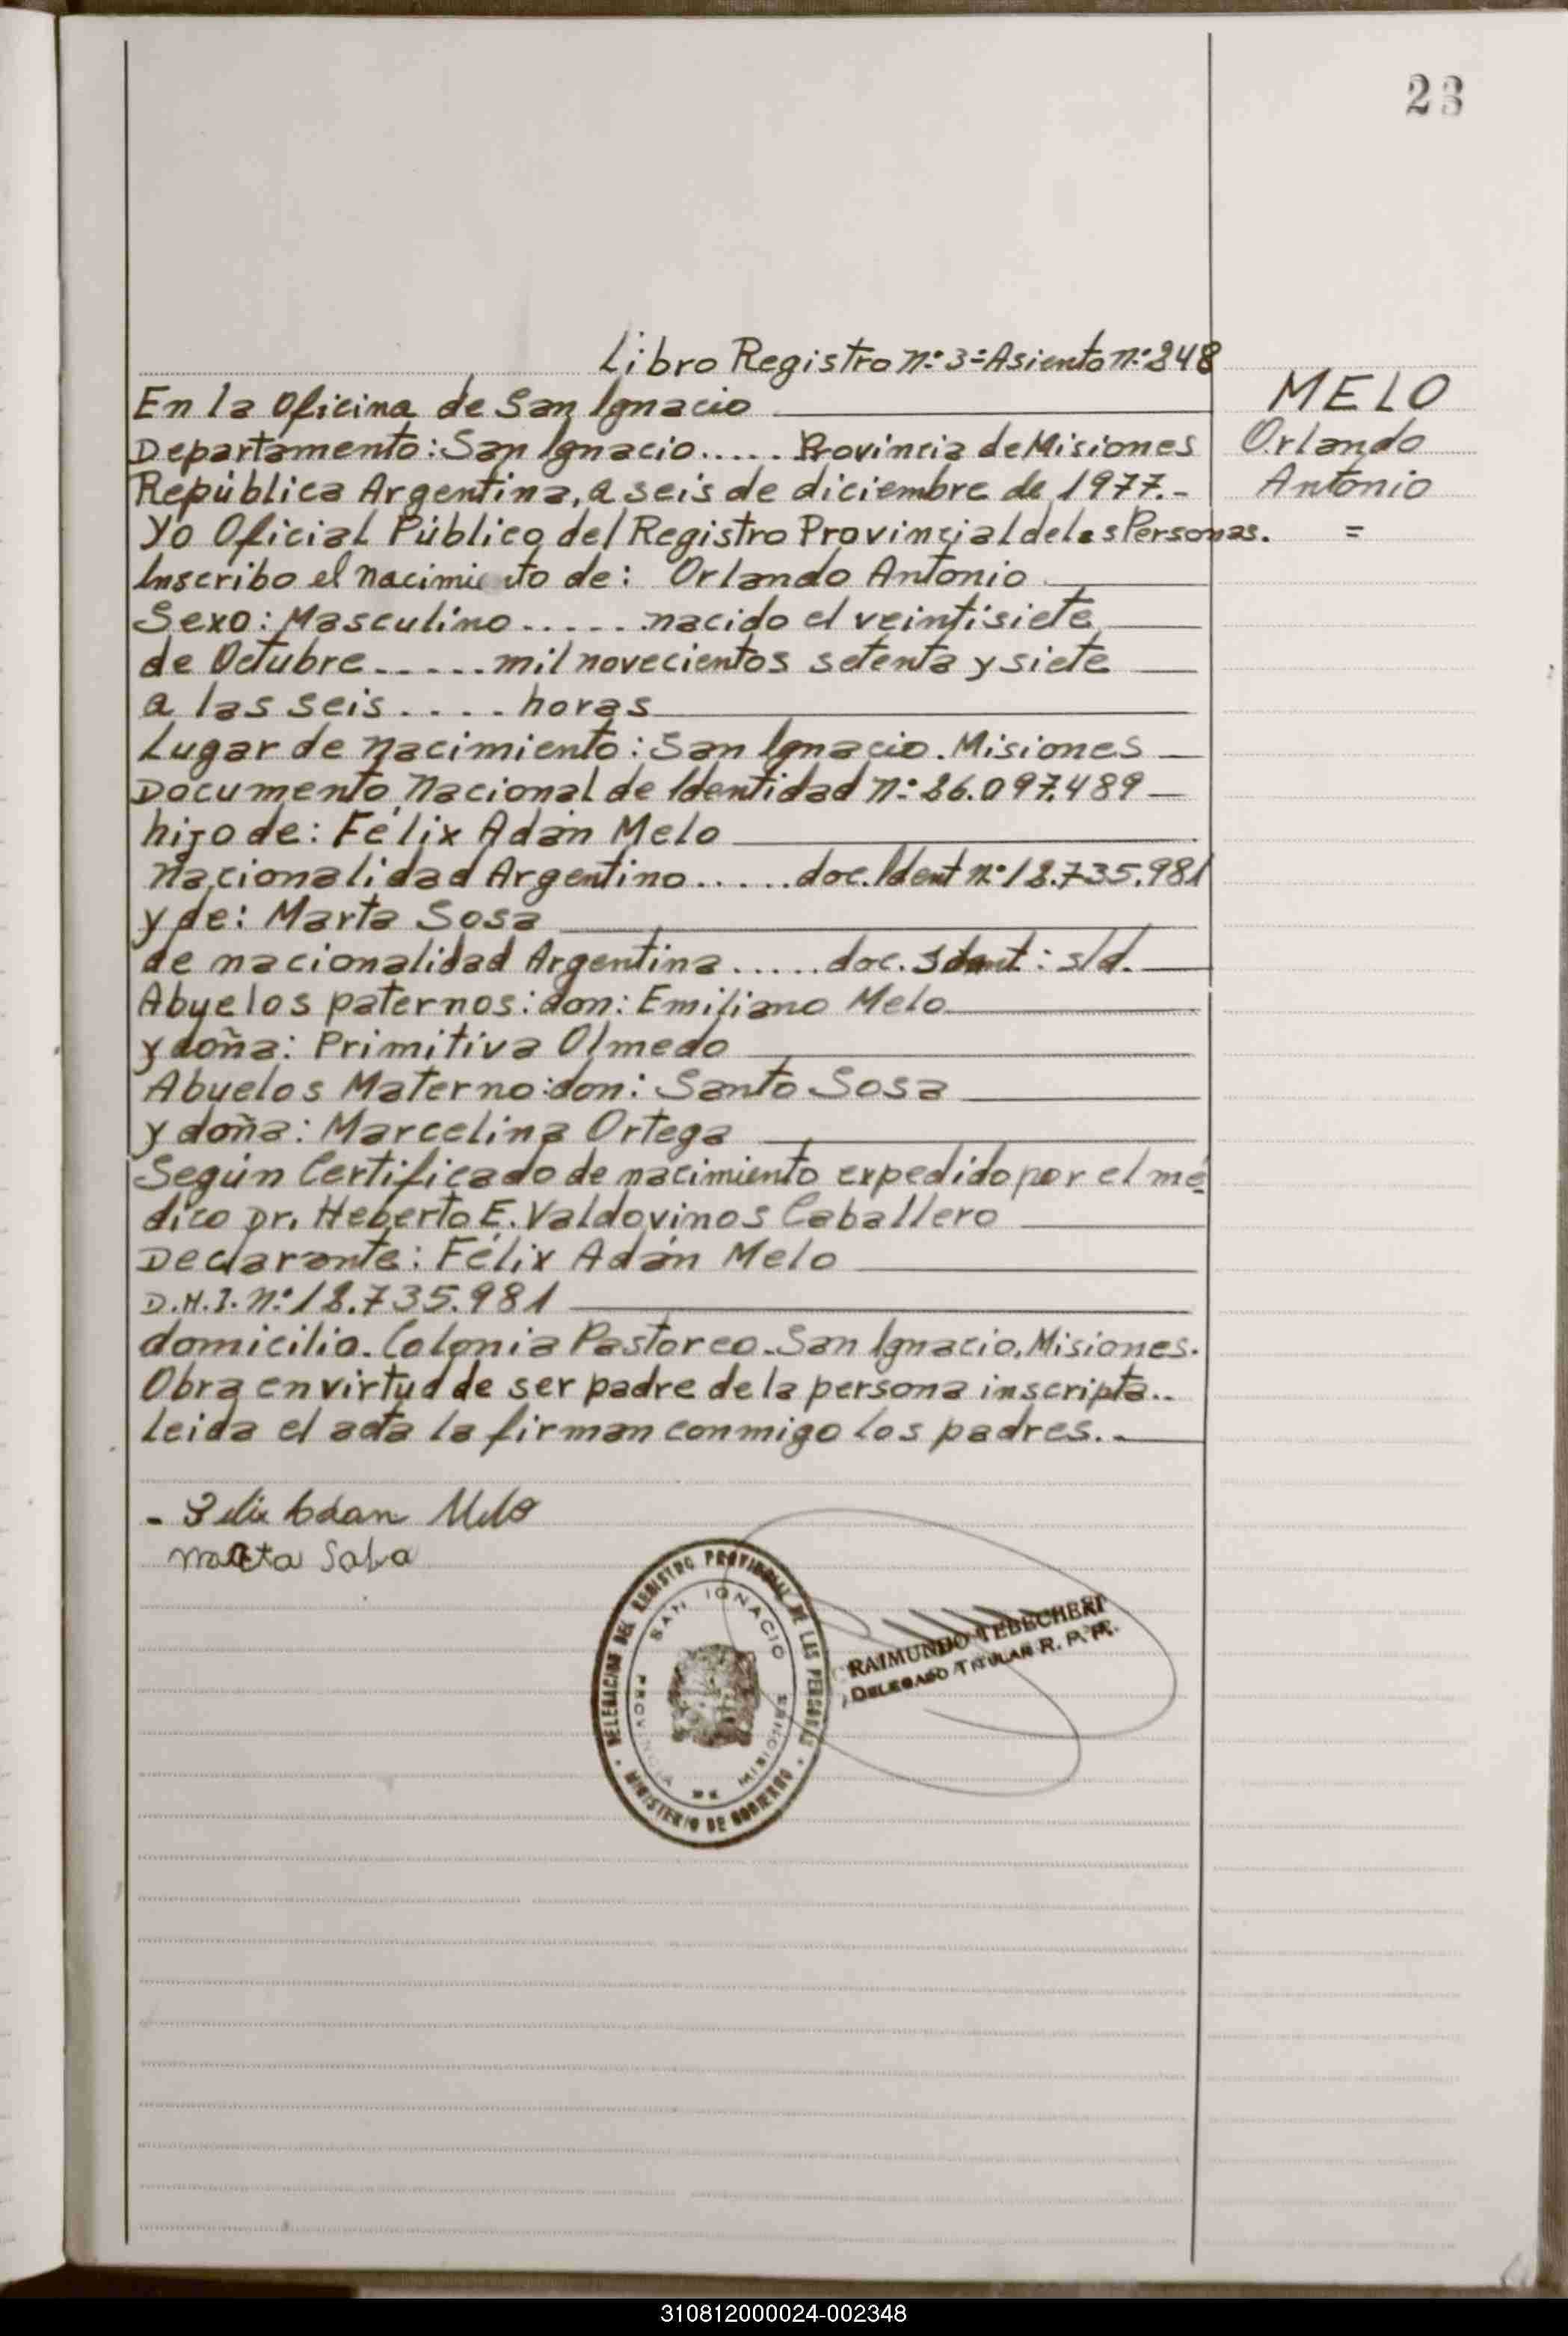 23
Libro Registro n:º 3 = Asiento n:º 248
En la Oficina de San Ignacio
MELO
Departamento: San Ignacio..... Provincia de Misiones
Orlando
República Argentina, a seis de diciembre de 1977.-
Antonio
Yo Oficial Público del Registro Provincial de las Personas.
=
Inscribo el nacimiento de: Orlando Antonio
Sexo: Masculino...... nacido el veintisiete
de Octubre..... mil novecientos setenta y siete
a las seis.... horas
Lugar de nacimiento: San Ignacio. Misiones
Documento Nacional de Identidad n:º 26.097.489
hijo de: Félix Adán Melo
Nacionalidad Argentino..... doc. Ident n:º 12.735.981
y de: Marta Sosa
de nacionalidad Argentina..... doc. Ident: s/d.
Abuelos paternos: don: Emiliano Melo
y doña: Primitiva Olmedo
Abuelos Materno: don: Santo Sosa
y doña: Marcelina Ortega
Según Certificado de nacimiento expedido por el mé
dico Dr. Heberto E. Valdovinos Caballero
Declarante: Félix Adán Melo
D.N.I. n:º 12.735.981
domicilio. Colonia Pastoreo. San Ignacio, Misiones.
Obra en virtud de ser padre de la persona inscripta..
leida el acta la firman conmigo los padres..
- Felix Adan Melo
Marta Sosa
DELEGACION DEL REGISTRO PROVINCIAL DE LAS PERSONAS
SAN IGNACIO
PROVINCIA DE MISIONES
MINISTERIO DE GOBIERNO
RAIMUNDO TEBECHERI
DELEGADO TITULAR R. P. P.
310812000024-002348